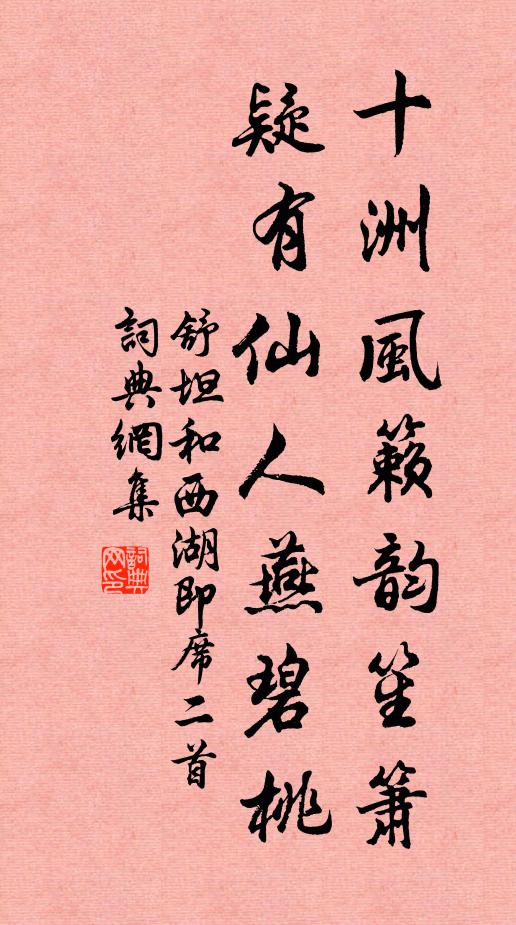 十洲風籟韵笙簫
疑有仙人燕碧桃
舒坦和西湖即席二首
詞典網集
詞典网印